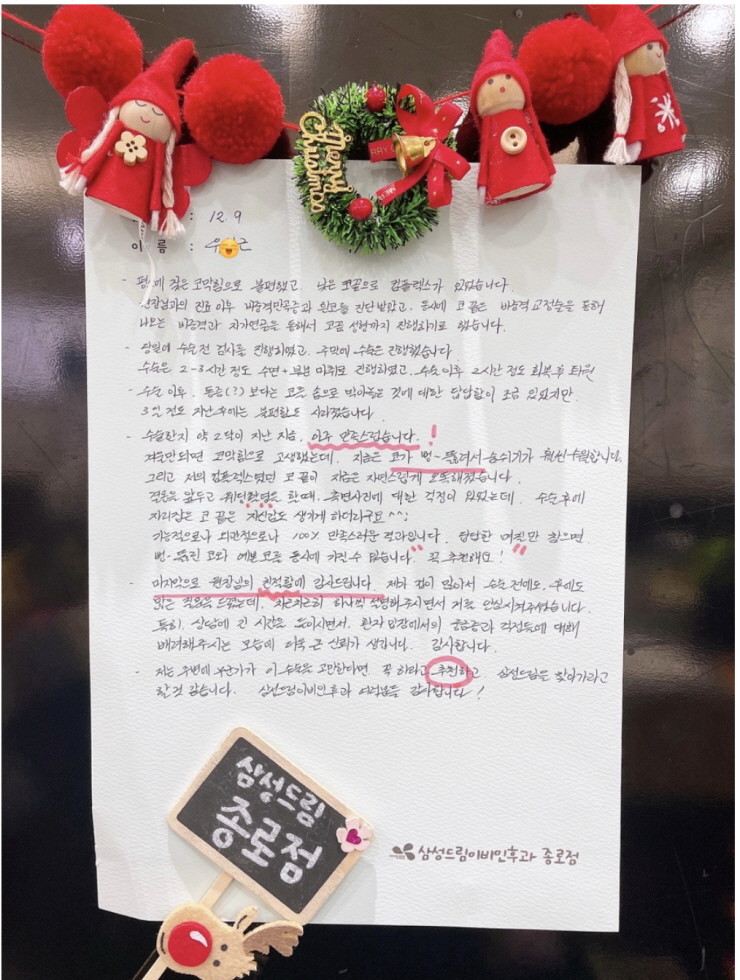 Merry Christmas
: 12.9
이 름 :
- 평소에 잦은 코막힘으로 불편했고, 낮은 코끝으로 컴플렉스가 있었습니다.
원장님과의 진료 이후 비중격만곡증과 휜코를 진단받았고, 동시에 코 끝은 비중격 교정술을 통해
나오는 비중격과 자가연골을 통해서 코끝 성형까지 진행하기로 했습니다.
- 당일에 수술 전 검사를 진행하였고, 주말에 수술은 진행했습니다
수술은 2-3시간 정도 수면+부분 마취로 진행하였고, 수술 이후 2시간 정도 회복 후 퇴원
- 수술 이후, 통증(?) 보다는 코를 솜으로 막아놓은 것에 대한 답답함이 조금 있었지만,
3일 정도 지난 후에는 불편함도 사라졌습니다.
- 수술한지 약 2달이 지난 지금, 아주 만족스럽습니다. !
겨울만되면 코막힘으로 고생했는데, 지금은 코가 뻥~ 뚫려서 숨쉬기가 훨씬 수월합니다.
그리고 저의 컴플렉스였던 코 끝이 지금은 자연스럽게 오똑해졌습니다.
결혼을 앞두고 웨딩촬영을 할 때, 측면사진에 대한 걱정이 있었는데, 수술 후에
자리잡은 코 끝은 자신감도 생기게 하더라구요^^;
기능적으로나 외관적으로나 100% 만족스러운 결과입니다. 답답한 며칠만 참으면,
뻥~ 뚫린 코와 예쁜 코를 동시에 가질 수 있습니다. " 꼭 추천해요! "
- 마지막으로 원장님의 친절함에 감사드립니다. 제가 겁이 많아서 수술 전에도, 후에도
많은 질문을 드렸는데, 차근차근히 하나씩 설명해주시면서 저를 안심시켜주셨습니다.
특히, 상담에 긴 시간을 쏟으시면서, 환자 입장에서의 궁금증과 걱정들에 대해
배려해주시는 모습에 더욱 큰 신뢰가 생깁니다. 감사합니다.
- 저는 주변에 누군가가 이 수술을 고민한다면 꼭 하라고 추천하고 삼성드림을 찾아가라고
할 것 같습니다. 삼성드림이비인후과 여러분들 감사합니다!
삼성드림
종로점
삼성드림이비인후과 종로점